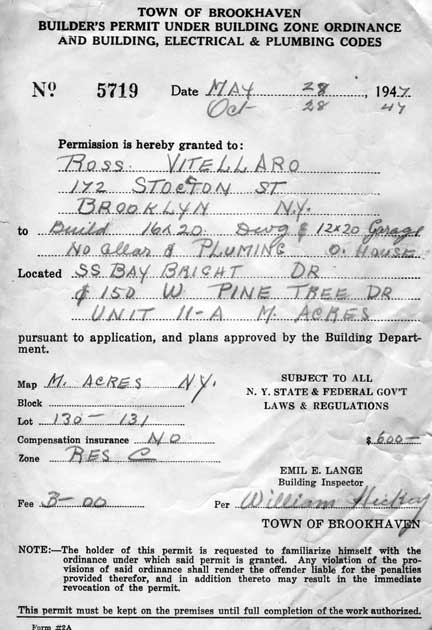 TOWN OF BROOKHAVEN
BUILDER'S PERMIT UNDER BUILDING ZONE ORDINANCE
AND BUILDING, ELECTRICAL & PLUMBING CODES
No 5719 Date MAY 28, 1947
Oct 28 47
Permission is hereby granted to:
ROSS VITELLARO
172 STOCTON ST
BROOKLYN N.Y.
to Build 16x20 Dwg & 12x20 Garage
No Cellar & PLUMING O. HOUSE
Located SS BAY BRIGHT DR
& 150 W PINE TREE DR
UNIT 11-A M. ACRES
pursuant to application, and plans approved by the Building Depart-
ment.
Map M. ACRES N.Y.
Block
Lot 130-131
Compensation insurance NO
Zone RES C
SUBJECT TO ALL
N. Y. STATE & FEDERAL GOV'T
LAWS & REGULATIONS
$ 600-
EMIL E. LANGE
Building Inspector
Fee 3-00 Per William Hickey
TOWN OF BROOKHAVEN
NOTE:—The holder of this permit is requested to familiarize himself with the
ordinance under which said permit is granted. Any violation of the pro-
visions of said ordinance shall render the offender liable for the penalties
provided therefor, and in addition thereto may result in the immediate
revocation of the permit.
This permit must be kept on the premises until full completion of the work authorized.
Form #2A